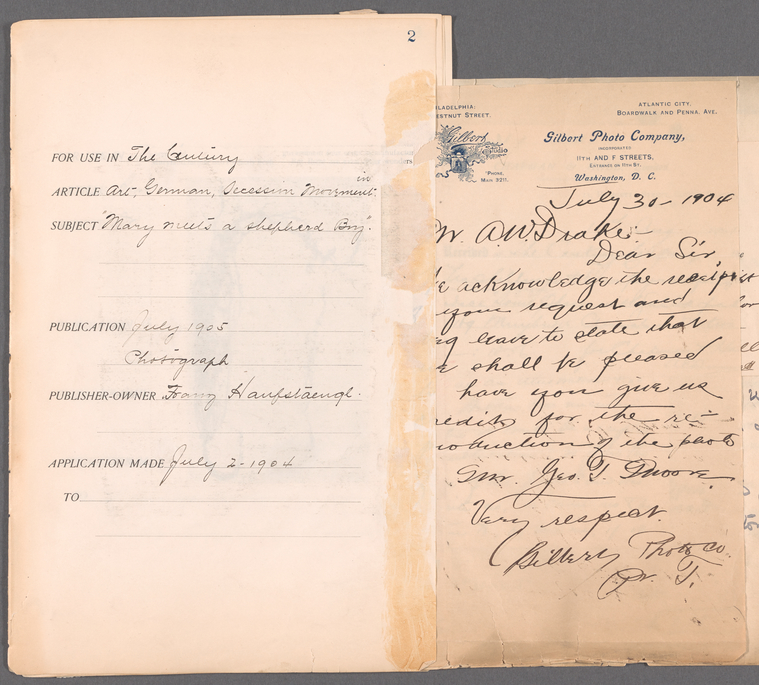 2
FOR USE IN The Century
ARTICLE Art, German, Secession Movement in
SUBJECT "Mary meets a shepherd Boy".
PUBLICATION July 1905
Photograph
PUBLISHER-OWNER Franz Hanfstaengl.
APPLICATION MADE July 2-1904
TO
ILADELPHIA:
ESTNUT STREET.
ATLANTIC CITY,
BOARDWALK AND PENNA. AVE.
Gilbert
Studio
'PHONE,
MAIN 3211.
Gilbert Photo Company,
INCORPORATED
11TH AND F STREETS,
ENTRANCE ON 11TH ST.
Washington, D. C.
July 30-1904
Mr. A.W. Drake-
Dear Sir
e acknowledge the receipt
your request and
eg leave to state that
e shall be pleased
have you give us
redit for the re-
roduction of the photo
Geo. T. Moore
Very respect.
Gilbert Photo Co.